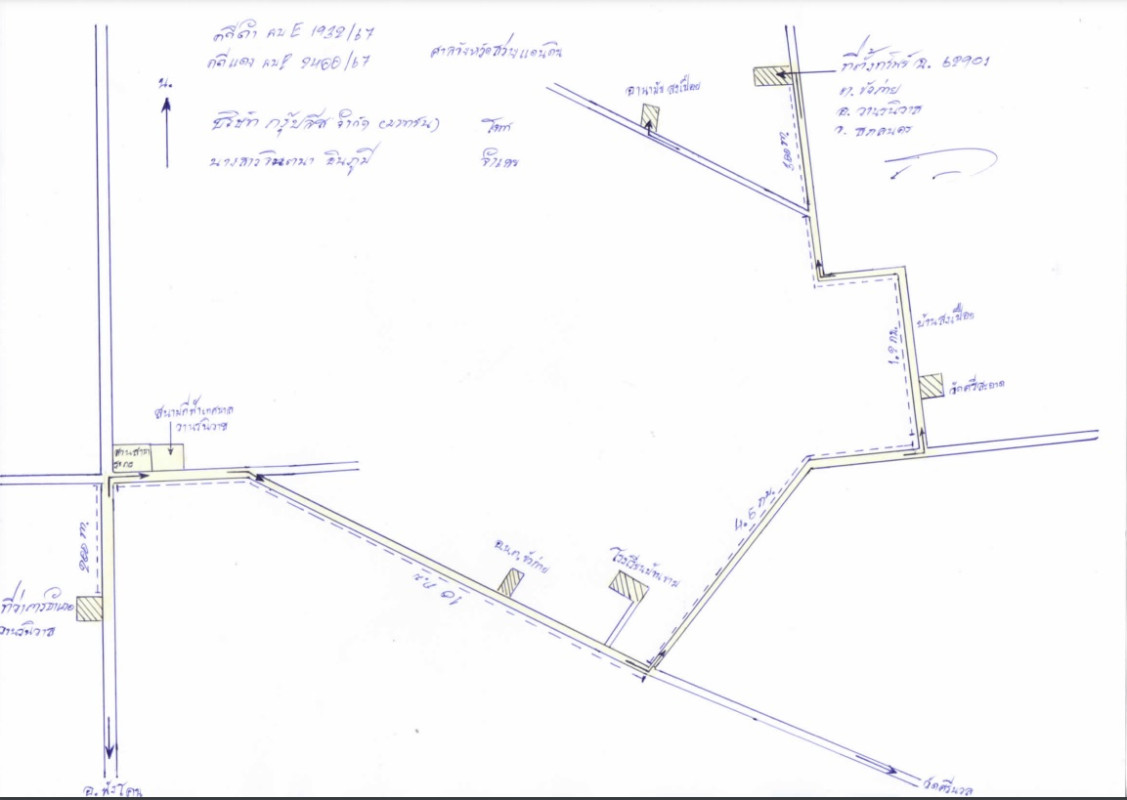 คดีดำ ผบ E 1932/67
คดีแดง ผบ E 2460/67
ศาลจังหวัดสว่างแดนดิน
น.
บริษัท กรุ๊ปลีส จำกัด (มหาชน) โจทก์
นางสาวจินตนา อินภูมี จำเลย
ที่ตั้งทรัพย์ ฉ. 62901
ต. ขัวก่าย
อ. วานรนิวาส
จ. สกลนคร
อนามัย สงเปือย
500 m.
บ้านสงเปือย
1.2 กม.
วัดศรีสะอาด
สนามกีฬาเทศบาล
วานรนิวาส
4.5 กม.
อบต. ขัวก่าย
โรงเรียนบ้านขาม
10 กม.
200 m.
ที่ว่าการอำเภอ
วานรนิวาส
อ. พังโคน